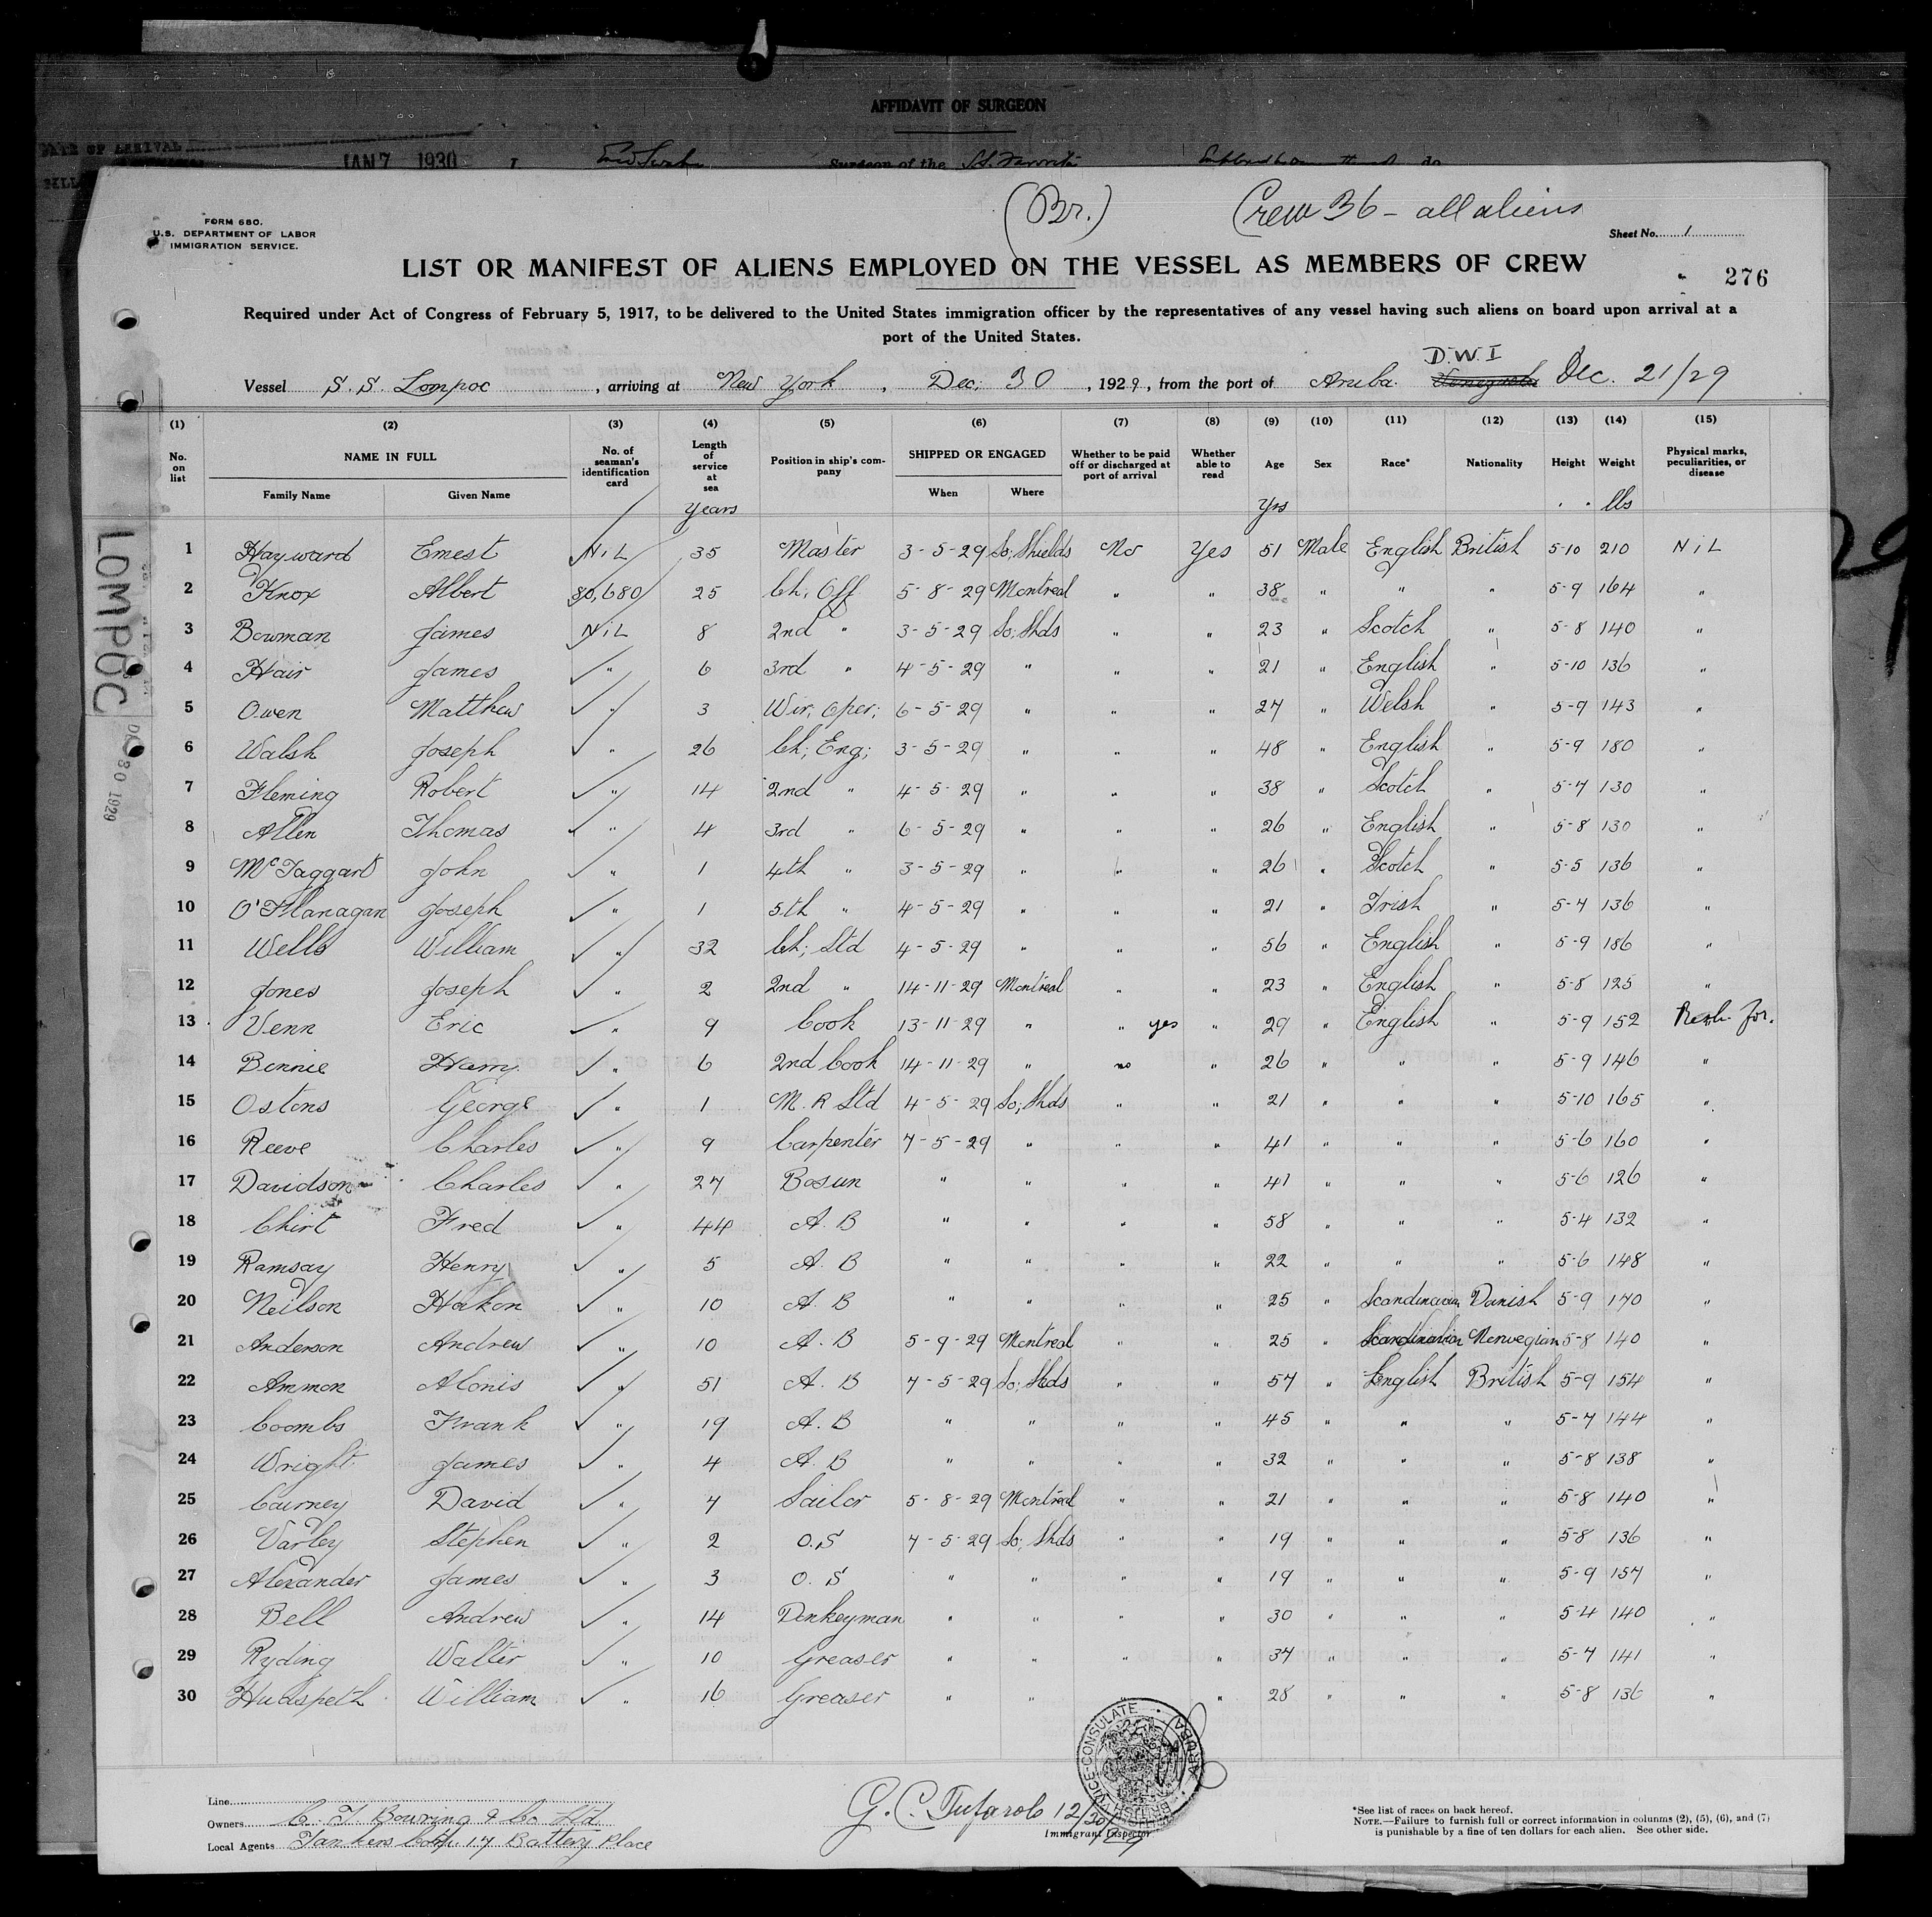 AFFIDAVIT OF SURGEON
DATE OF ARRIVAL JAN 7 1930 I, Surgeon of the
(Br.) Crew 36 - all aliens
FORM 680.
U.S. DEPARTMENT OF LABOR
IMMIGRATION SERVICE.
Sheet No. 1
LIST OR MANIFEST OF ALIENS EMPLOYED ON THE VESSEL AS MEMBERS OF CREW
276
Required under Act of Congress of February 5, 1917, to be delivered to the United States immigration officer by the representatives of any vessel having such aliens on board upon arrival at a
port of the United States.
D.W.I
Vessel S.S. Lompoc, arriving at New York, Dec; 30, 1929, from the port of Aruba. Venezuela Dec. 21/29
(1) (2) (3) (4) (5) (6) (7) (8) (9) (10) (11) (12) (13) (14) (15)
No. on list NAME IN FULL Family Name Given Name No. of seaman's identification card Length of service at sea Position in ship's company SHIPPED OR ENGAGED When Where Whether to be paid off or discharged at port of arrival Whether able to read Age Sex Race* Nationality Height Weight Physical marks, peculiarities, or disease
Years Yrs lbs
1 Hayward Ernest NiL 35 Master 3-5-29 So; Shields No Yes 51 Male English British 5-10 210 NiL
2 Knox Albert 80,680 25 Ch; Off 5-8-29 Montreal " " 38 " " " 5-9 164 "
3 Bowman James NiL 8 2nd " 3-5-29 So; Shds " " 23 " Scotch " 5-8 140 "
4 Hair James " 6 3rd " 4-5-29 " " " 21 " English " 5-10 136 "
5 Owen Matthew " 3 Wir; Oper; 6-5-29 " " " 27 " Welsh " 5-9 143 "
6 Walsh Joseph " 26 Ch; Eng; 3-5-29 " " " 48 " English " 5-9 180 "
7 Fleming Robert " 14 2nd " 4-5-29 " " " 38 " Scotch " 5-7 130 "
8 Allen Thomas " 4 3rd " 6-5-29 " " " 26 " English " 5-8 130 "
9 McTaggart John " 1 4th " 3-5-29 " " " 26 " Scotch " 5-5 136 "
10 O'Flanagan Joseph " 1 5th " 4-5-29 " " " 21 " Irish " 5-7 136 "
11 Wells William " 32 Ch; Std 4-5-29 " " " 56 " English " 5-9 186 "
12 Jones Joseph " 2 2nd " 14-11-29 Montreal " " 23 " English " 5-8 125 "
13 Venn Eric " 9 Cook 13-11-29 " " yes " 29 " English " 5-9 152
14 Bennie Harry " 6 2nd Cook 14-11-29 " no " 26 " " " 5-9 146 "
15 Ostens George " 1 M.R Std 4-5-29 So; Shds " " 21 " " " 5-10 165 "
16 Reeve Charles " 9 Carpenter 7-5-29 " " " 41 " " " 5-6 160 "
17 Davidson Charles " 27 Bosun " " " " 41 " " " 5-6 126 "
18 Chirt Fred " 44 A.B " " " " 58 " " " 5-4 132 "
19 Ramsay Henry " 5 A.B " " " " 22 " " " 5-6 148 "
20 Neilson Hakon " 10 A.B " " " " 25 " Scandinavian Danish 5-9 170 "
21 Anderson Andrew " 10 A.B 5-9-29 Montreal " " 25 " Scandinavian Norwegian 5-8 140 "
22 Ammon Alonis " 51 A.B 7-5-29 So; Shds " " 57 " English British 5-9 154 "
23 Coombs Frank " 19 A.B " " " " 45 " " " 5-7 144 "
24 Wright James " 4 A.B " " " " 32 " " " 5-8 138 "
25 Cairney David " 7 Sailor 5-8-29 Montreal " " 21 " " " 5-8 140 "
26 Varley Stephen " 2 O.S 7-5-29 So; Shds " " 19 " " " 5-8 136 "
27 Alexander James " 3 O.S " " " " 19 " " " 5-9 157 "
28 Bell Andrew " 14 Donkeyman " " " " 30 " " " 5-4 140 "
29 Ryding Walter " 10 Greaser " " " " 37 " " " 5-7 141 "
30 Hudspeth William " 16 Greaser " " " " 28 " " " 5-8 136 "
LOMPOC
DEC 30 1929
BRITISH VICE-CONSULATE ARUBA
Line
Owners C. T. Bowring & Co Ltd
Local Agents Tankers 17 Battery Place
G. C. Tufarolo 12/30/29
Immigrant Inspector
*See list of races on back hereof.
NOTE.—Failure to furnish full or correct information in columns (2), (5), (6), and (7)
is punishable by a fine of ten dollars for each alien. See other side.